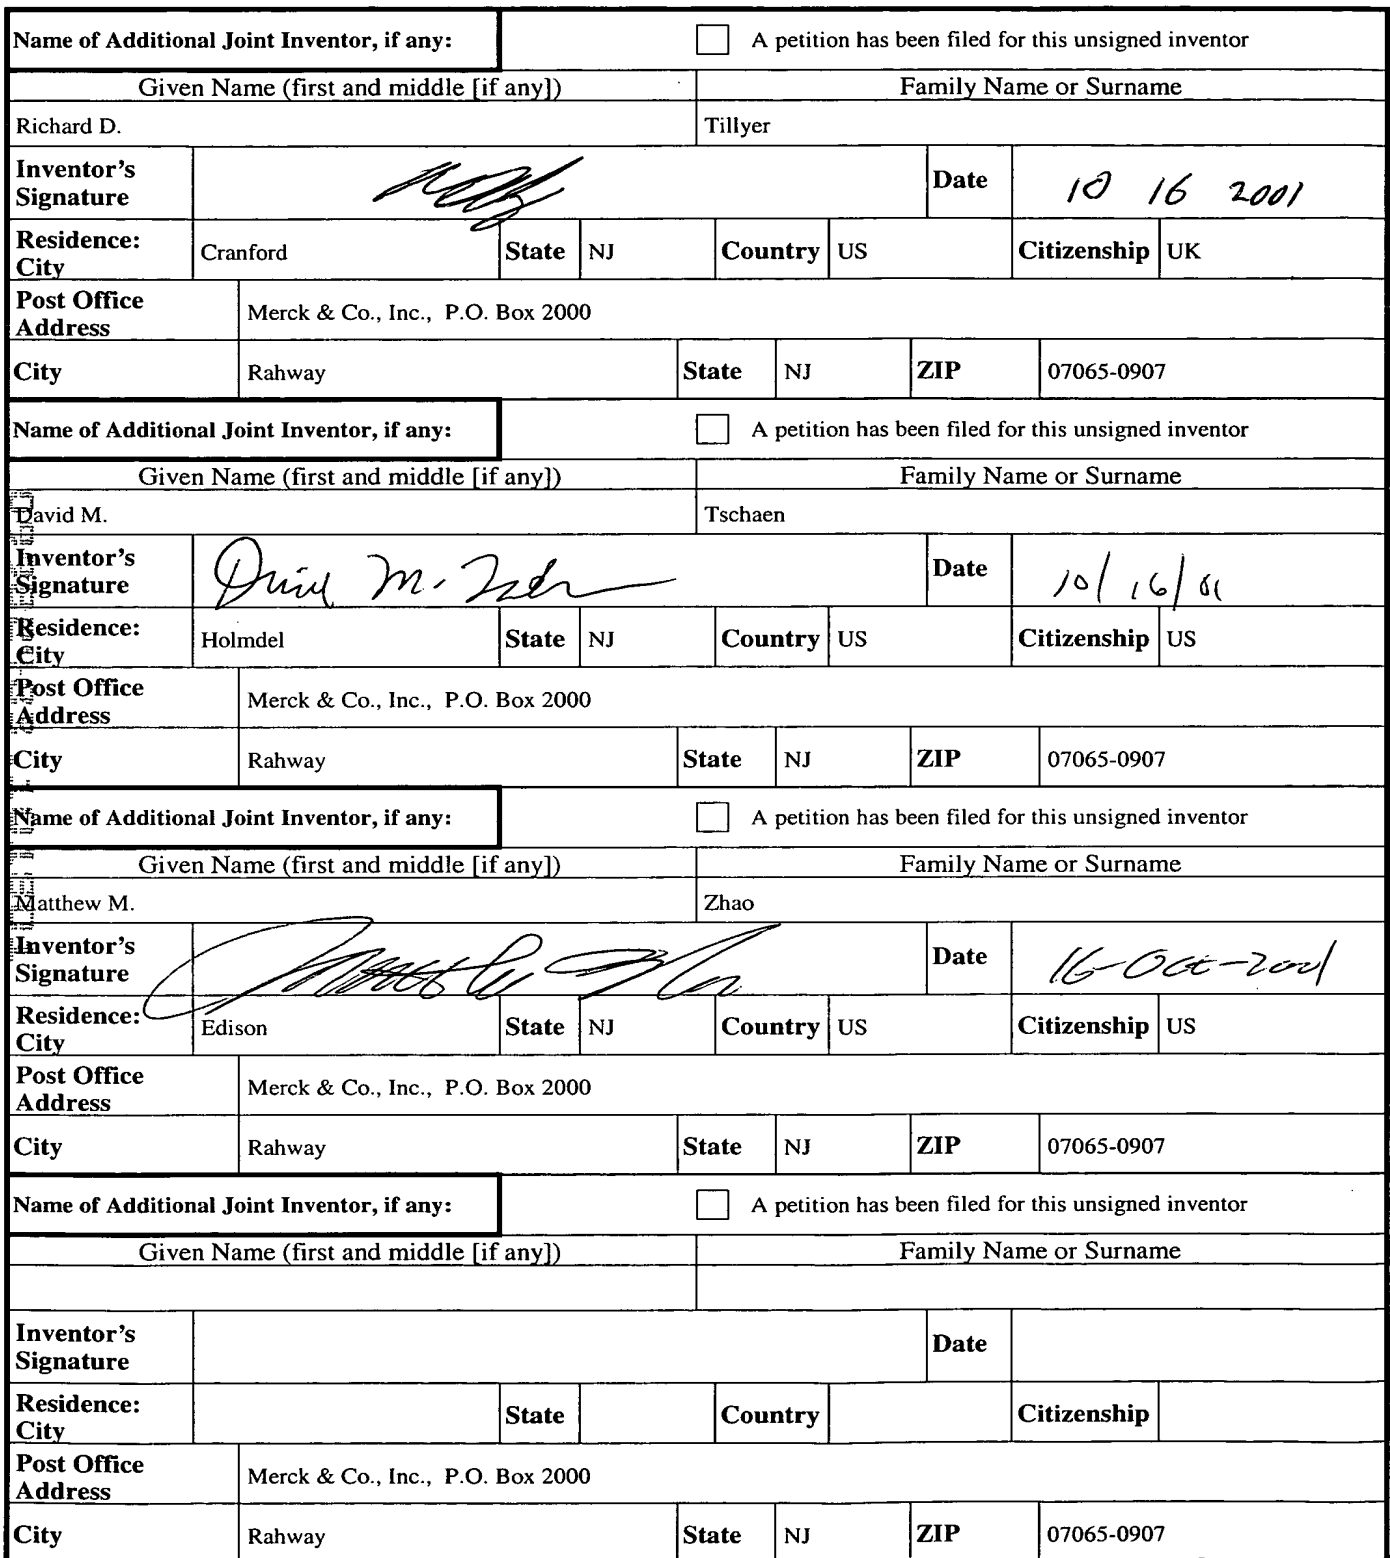 Name of Additional Joint Inventor, if any: A petition has been filed for this unsigned inventor
Given Name (first and middle [if any]) Family Name or Surname
Richard D. Tillyer
Inventor's Signature Date 10 16 2001
Residence: City Cranford State NJ Country US Citizenship UK
Post Office Address Merck & Co., Inc., P.O. Box 2000
City Rahway State NJ ZIP 07065-0907
Name of Additional Joint Inventor, if any: A petition has been filed for this unsigned inventor
Given Name (first and middle [if any]) Family Name or Surname
David M. Tschaen
Inventor's Signature Date 10/16/01
Residence: City Holmdel State NJ Country US Citizenship US
Post Office Address Merck & Co., Inc., P.O. Box 2000
City Rahway State NJ ZIP 07065-0907
Name of Additional Joint Inventor, if any: A petition has been filed for this unsigned inventor
Given Name (first and middle [if any]) Family Name or Surname
Matthew M. Zhao
Inventor's Signature Date 16-Oct-2001
Residence: City Edison State NJ Country US Citizenship US
Post Office Address Merck & Co., Inc., P.O. Box 2000
City Rahway State NJ ZIP 07065-0907
Name of Additional Joint Inventor, if any: A petition has been filed for this unsigned inventor
Given Name (first and middle [if any]) Family Name or Surname
Inventor's Signature Date
Residence: City State Country Citizenship
Post Office Address Merck & Co., Inc., P.O. Box 2000
City Rahway State NJ ZIP 07065-0907